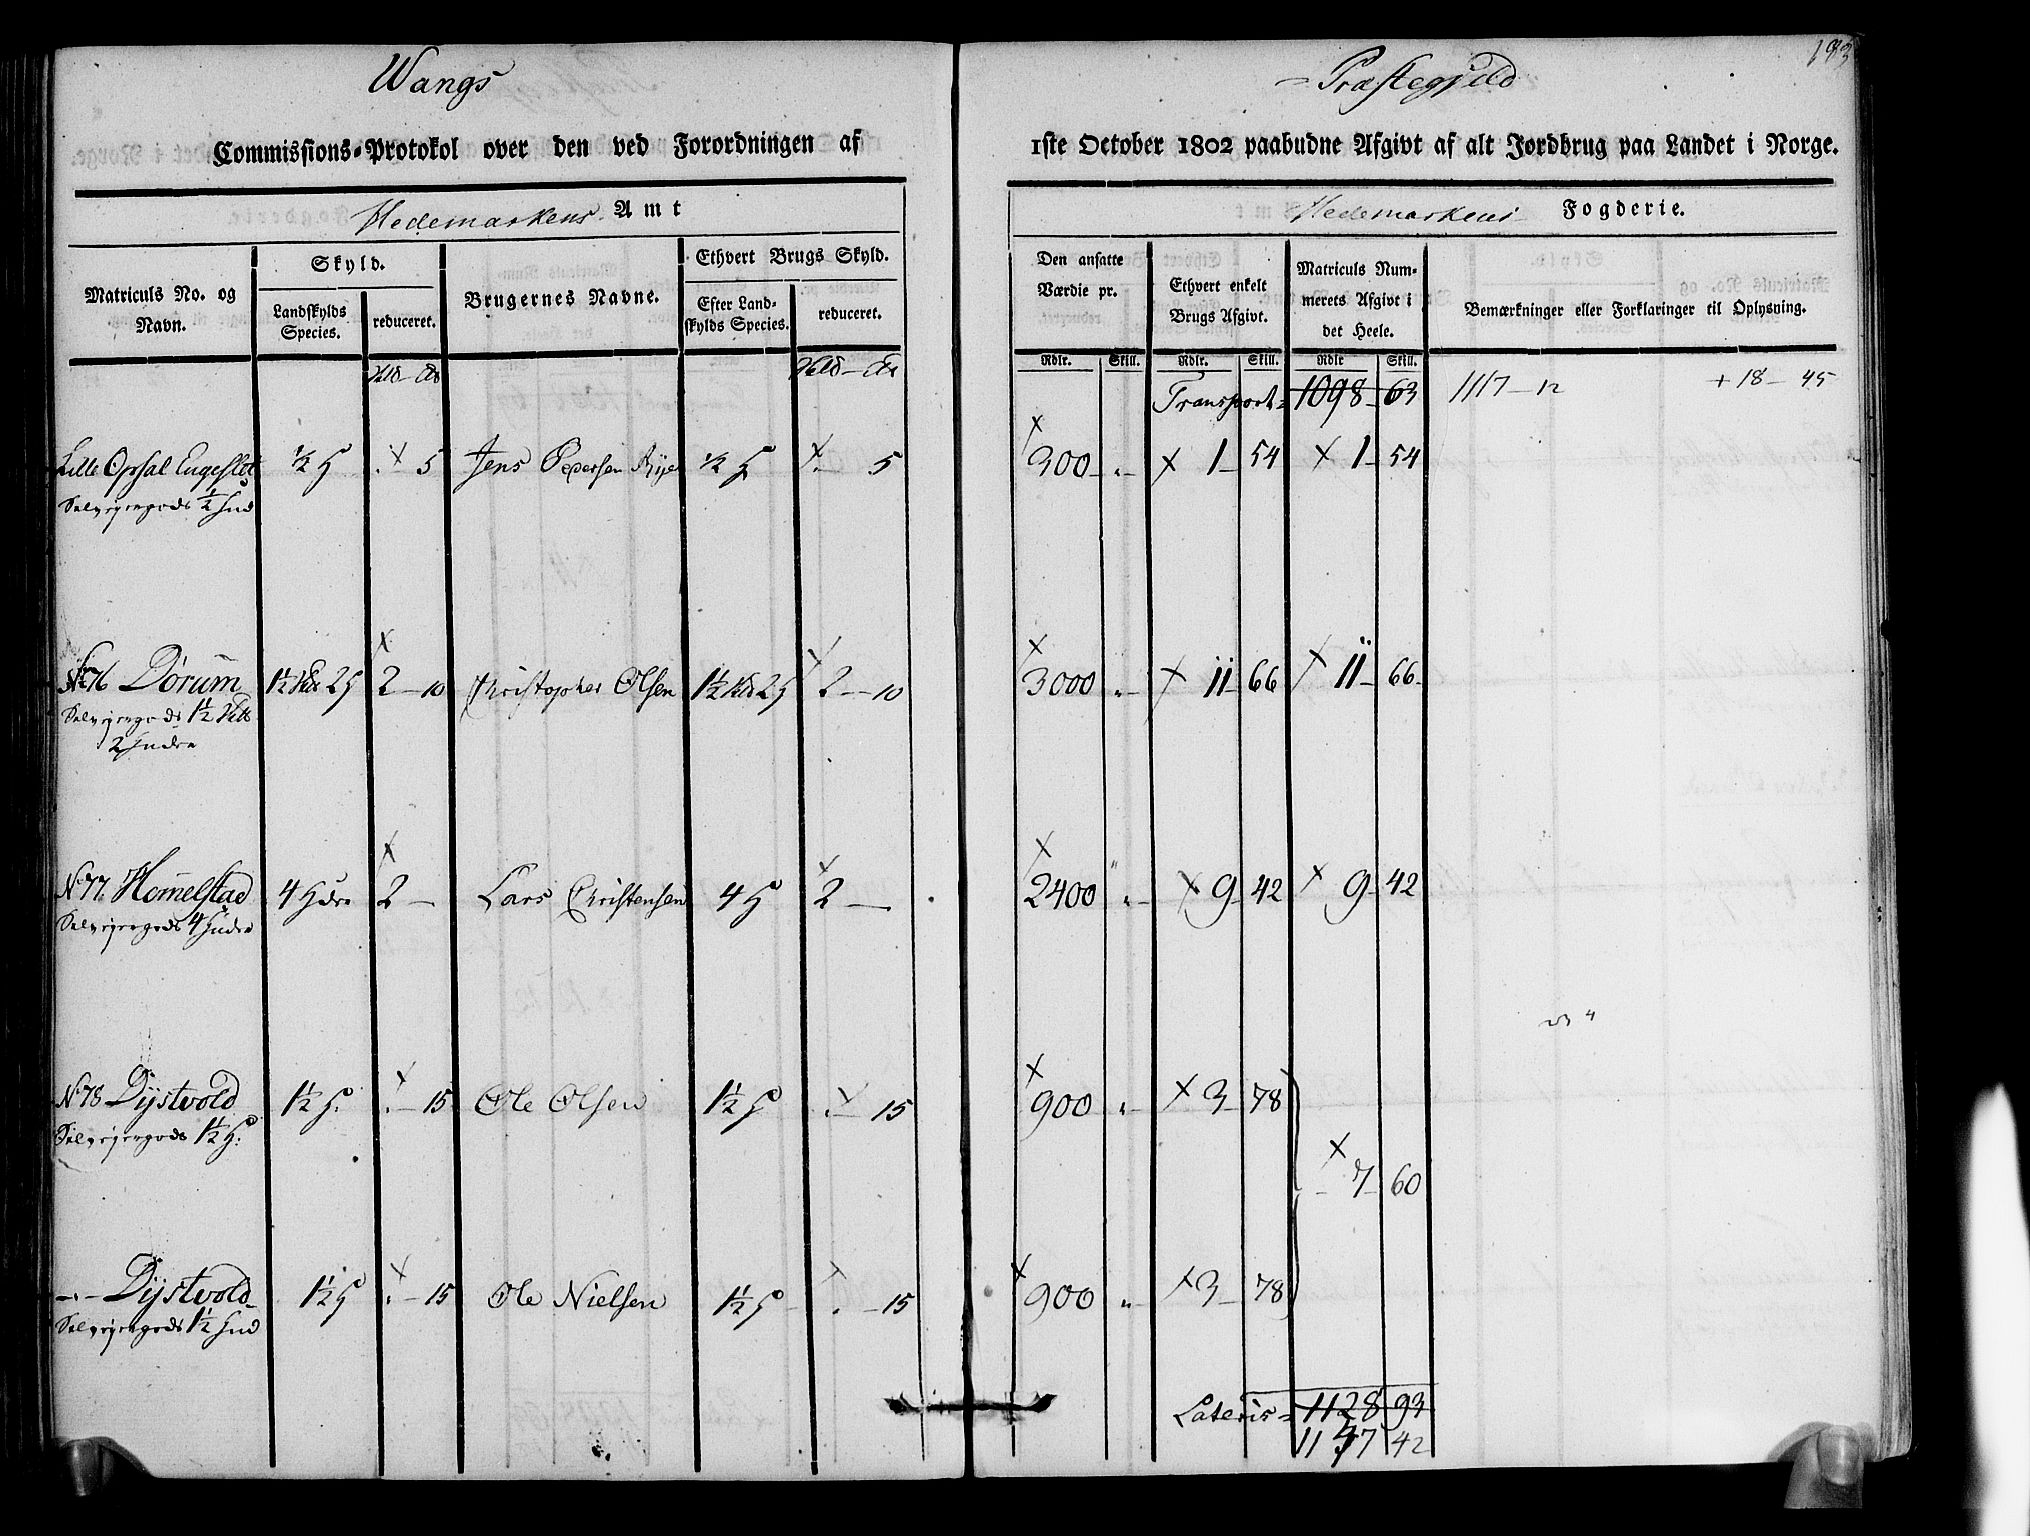 Wangs
Præstegjeld
193
Commissions-Protokol over den ved Forordningen af
1ste October 1802 paabudne Afgivt af alt Jordbrug paa Landet i Norge.
Hedemarkens Amt
Hedemarkens Fogderie.
Matriculs No. og Navn.
Skyld.
Landskylds Species.
reduceret.
Brugernes Navne.
Ethvert Brugs Skyld.
Efter Landskylds Species.
reduceret.
Den ansatte Værdie pr.
Ethvert enkelt Brugs Afgivt.
Matriculs Nummerets Afgivt i det Heele.
Bemærkninger eller Forklaringer til Oplysning.
Rdlr. Skill. Rdlr. Skill. Rdlr Skill.
Transport = 1098 - 63 1117 - 12 + 18 - 45
Lille Opsal Engeslet ½ H × . 5 Jens Pedersen Rye ½ H × . 5 × 300 - " - × 1 - 54 × 1 - 54
Selvejergods ½ Hud
No 76 Dørum 1½ 2 H × 2 - 10 Christopher Olsen 1½ 2 H × 2 - 10 × 3000 " - × 11 - 66 × 11 - 66 -
Selvejergods 1½
2 Huder
No 77. Hommelstad 4 Hder × 2 - Lars Christensen 4 H × 2 - × 2400 " - × 9 - 42 × 9 - 42
Selvejergods 4 Huder
No 78 Dystvold 1½ H. × . - 15 Ole Olsen 1½ H × . - 15 × 900 " - × 3 - 78
Selvejergods 1½ H.
× - 7 - 60
- " - Dystvold 1½ H × . - 15 Ole Nielsen 1½ H × . - 15 × 900 " - × 3 - 78
Selvejergods 1½ Hud
Lateris = 1128 93
1147 42